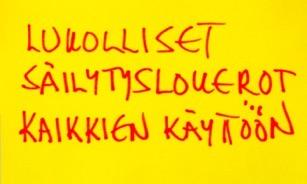 LUKOLLISET
SÄILYTYSLOKEROT
KAIKKIEN KÄYTTÖÖN